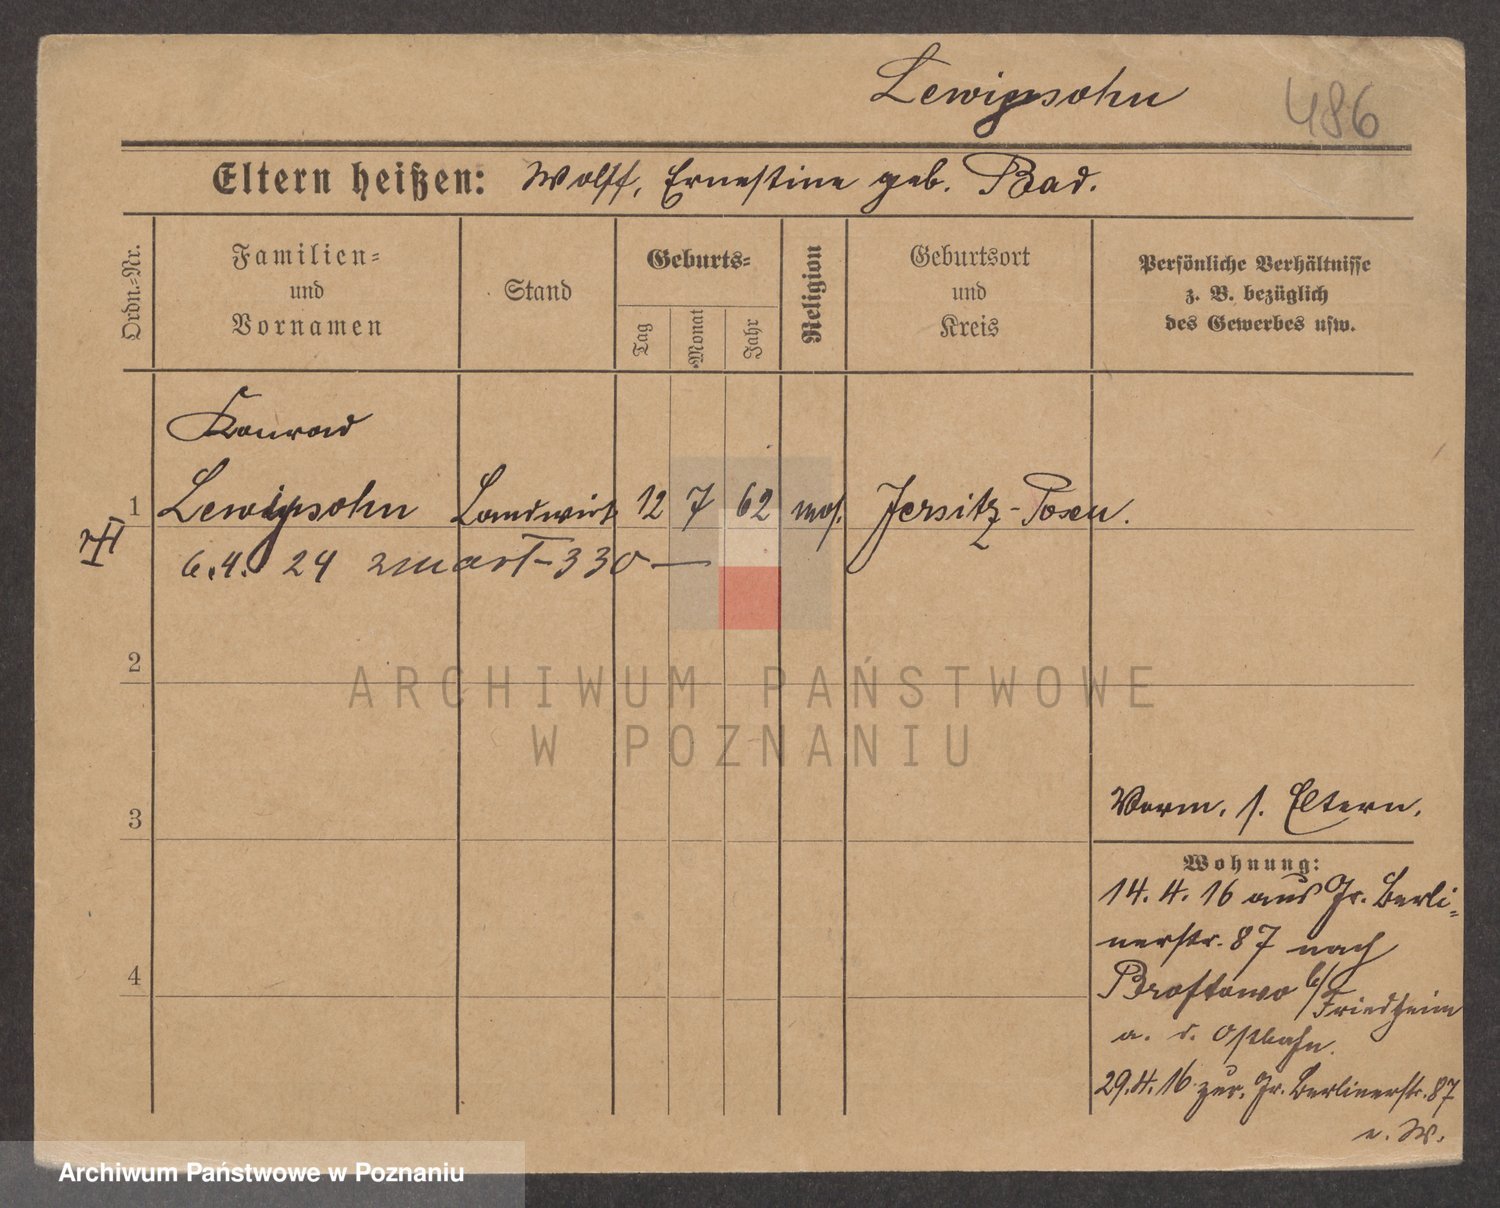 Lewissohn
486
Eltern heißen: Wolff, Ernestine geb. Bad.
Ordn.-Nr.
Familien-
und
Vornamen
Stand
Geburts-
Tag
Monat
Jahr
Religion
Geburtsort
und
Kreis
Persönliche Verhältnisse
z. B. bezüglich
des Gewerbes usw.
Konrad
1 Lewissohn Landwirt 12 7 62 mos. Jersitz-Posen.
6.4. 24 zmarł-330
2
ARCHIWUM PAŃSTWOWE
W POZNANIU
3
Vorm. s. Eltern.
Wohnung:
14. 4. 16 aus Gr. Berli-
nerstr. 87 nach
4
Brostowo b/Friedheim
a. d. Ostbahn.
29.4.16 zur. Gr. Berlinerstr. 87
Archiwum Państwowe w Poznaniu